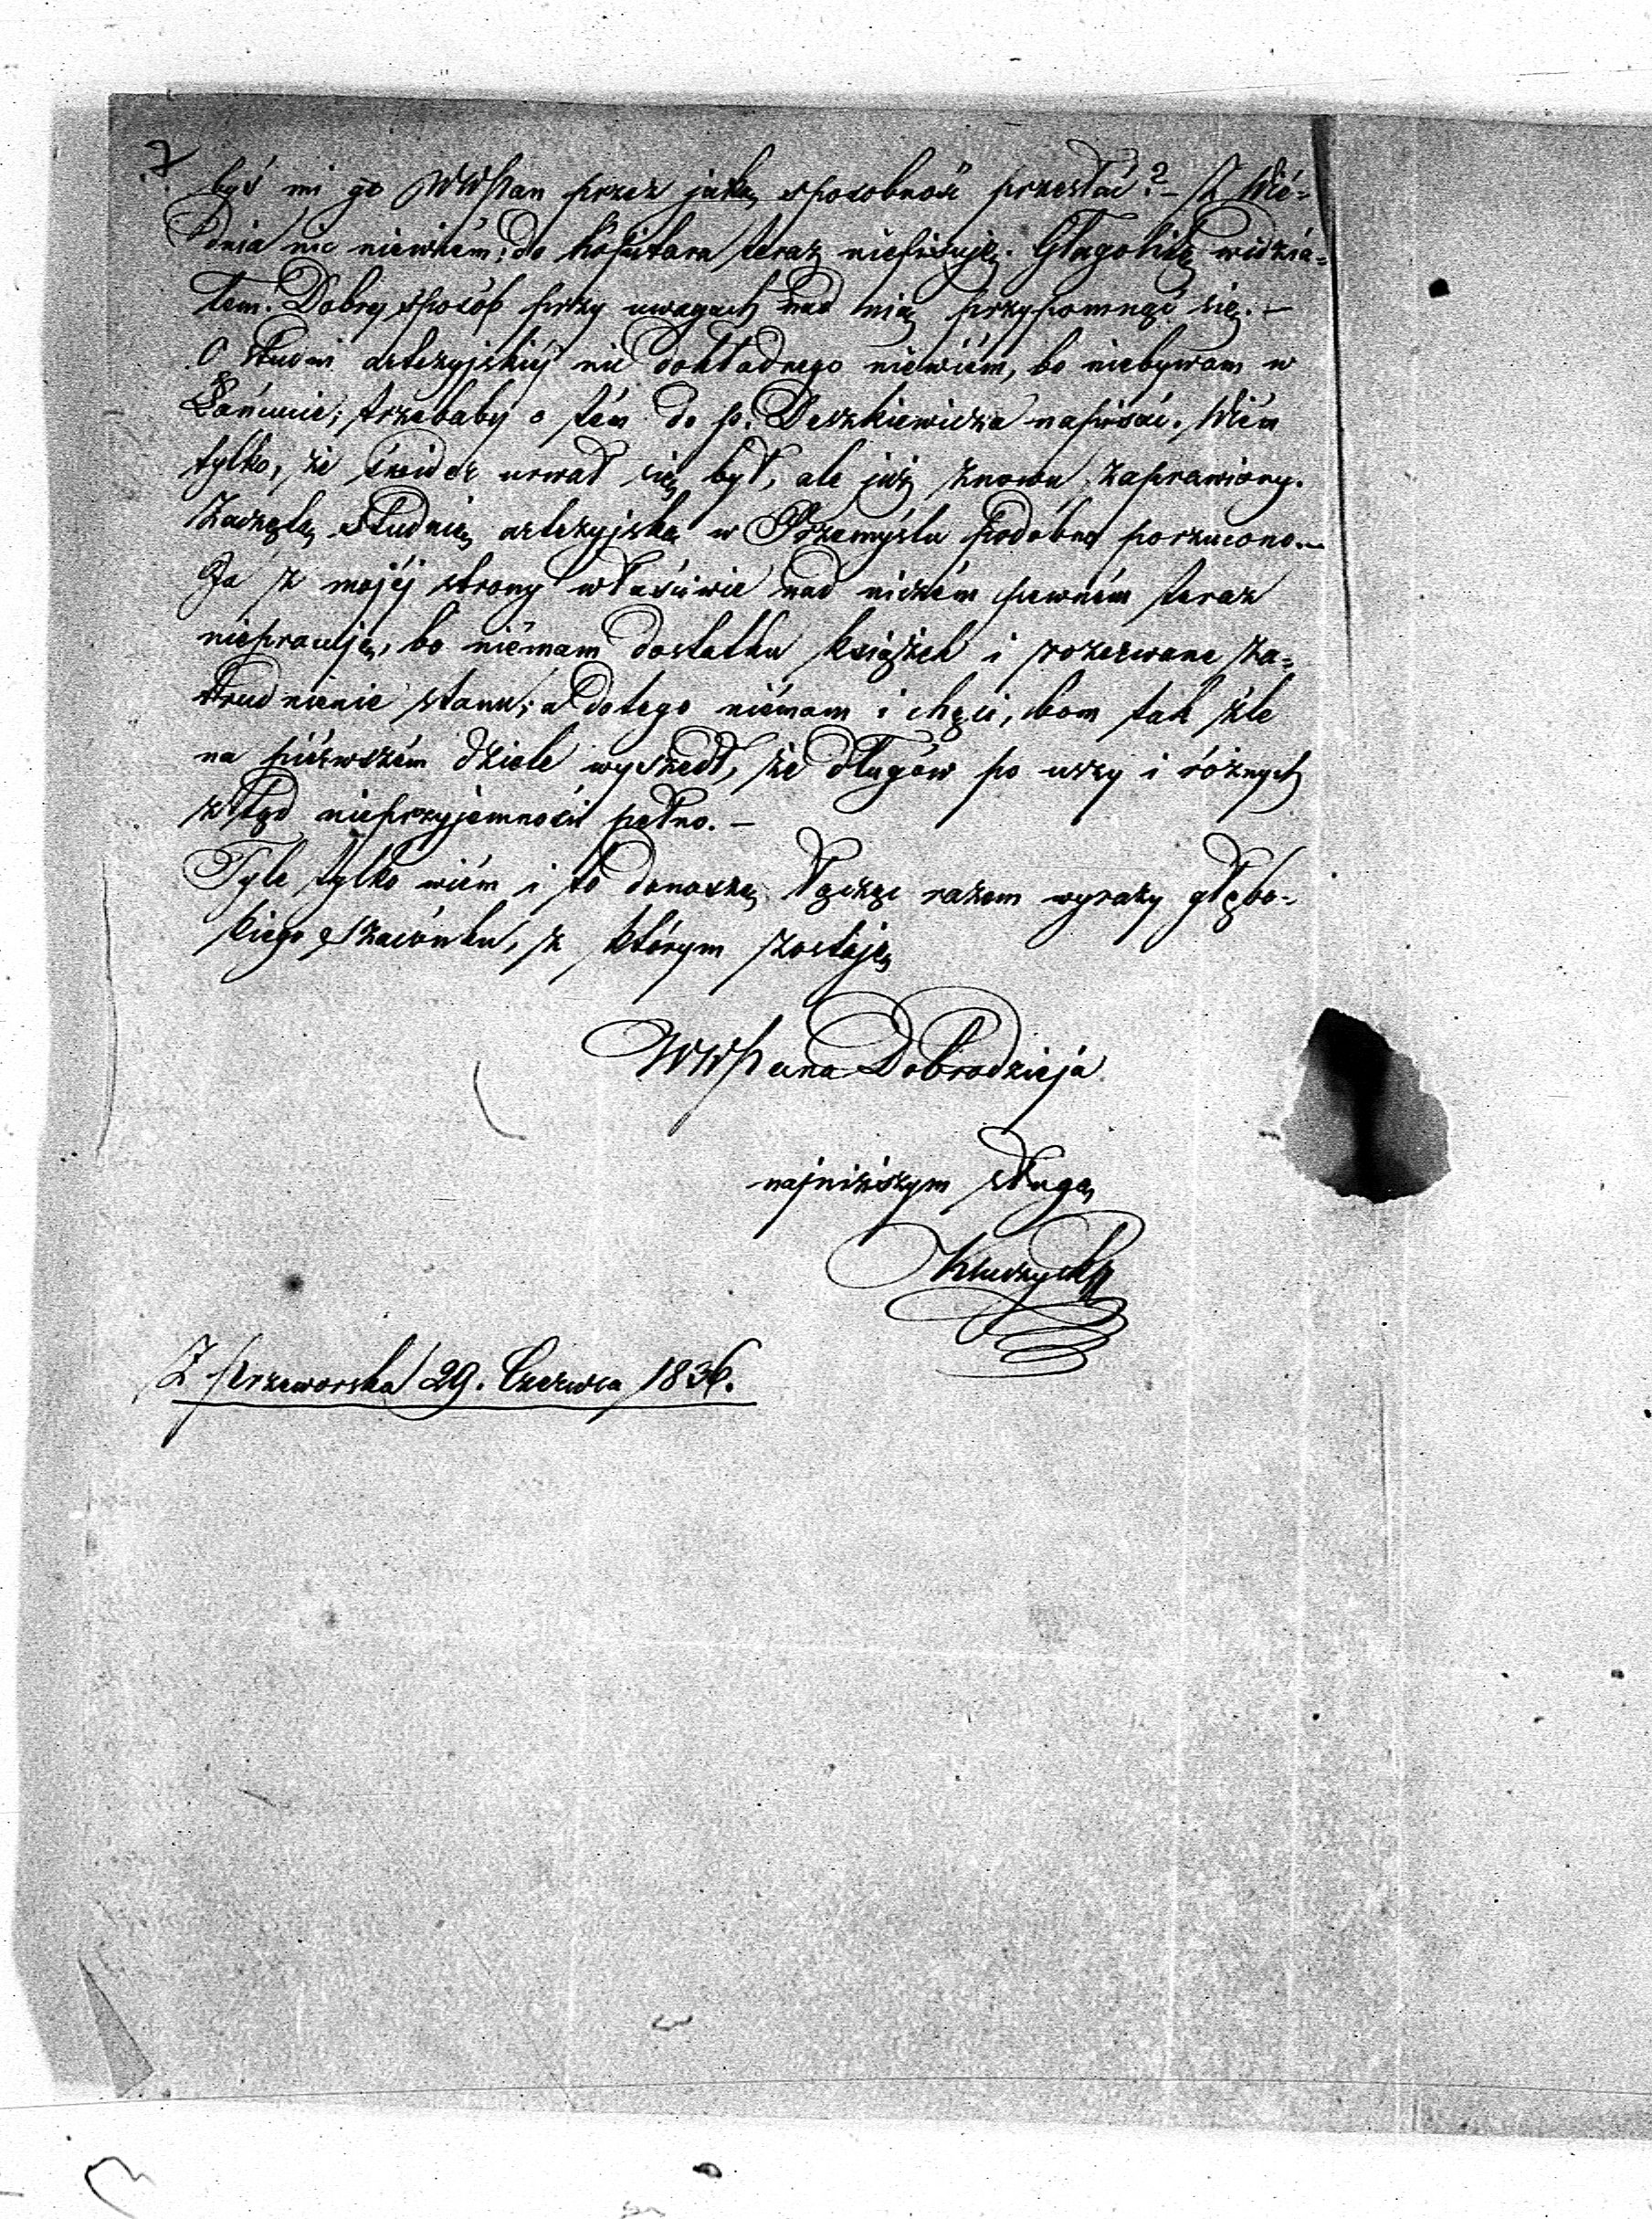 byś mi go WWPan przez jaką sposobność przesłać? – Z Wié-
dnia nic niewiém; do Kopitara teraz niepiszuję. Glagolitę widzia-
łem. Dobry sposób przy uwagach nad nią przypomnąć się. –
O studni artezyjskiéj nic dokładnego niewiém, bo niebywam w
Łańcucie; trzebaby o tém do p. Deszkiewicza napisać. Wiém
tylko, że świder urwał się był, ale już znowu zaprawiony.
Zaczętą studnię artezyjską w Przemyślu podobno porzucono. –
Ja z mojéj strony właściwie nad niczém pewném teraz
niepracuję, bo niémam dostatku książek i rozerwane za-
trudnienie stanu; a dotego niémam i chęci, bom tak źle
na piérwszém dziele wyszedł, że długów po uszy i różnych
ztąd nieprzyjemności pełno. –
Tyle tylko wiém i to donoszę łącząc razem wyrazy głębo-
kiego szacunku, z którym zostaję
WWPana Dobrodzieja
najniższym sługą
Z Przeworska 29. Czerwca 1836.